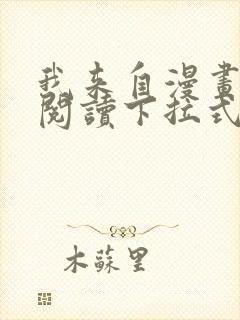 我来自漫畫
閱讀下拉式
木蘇里